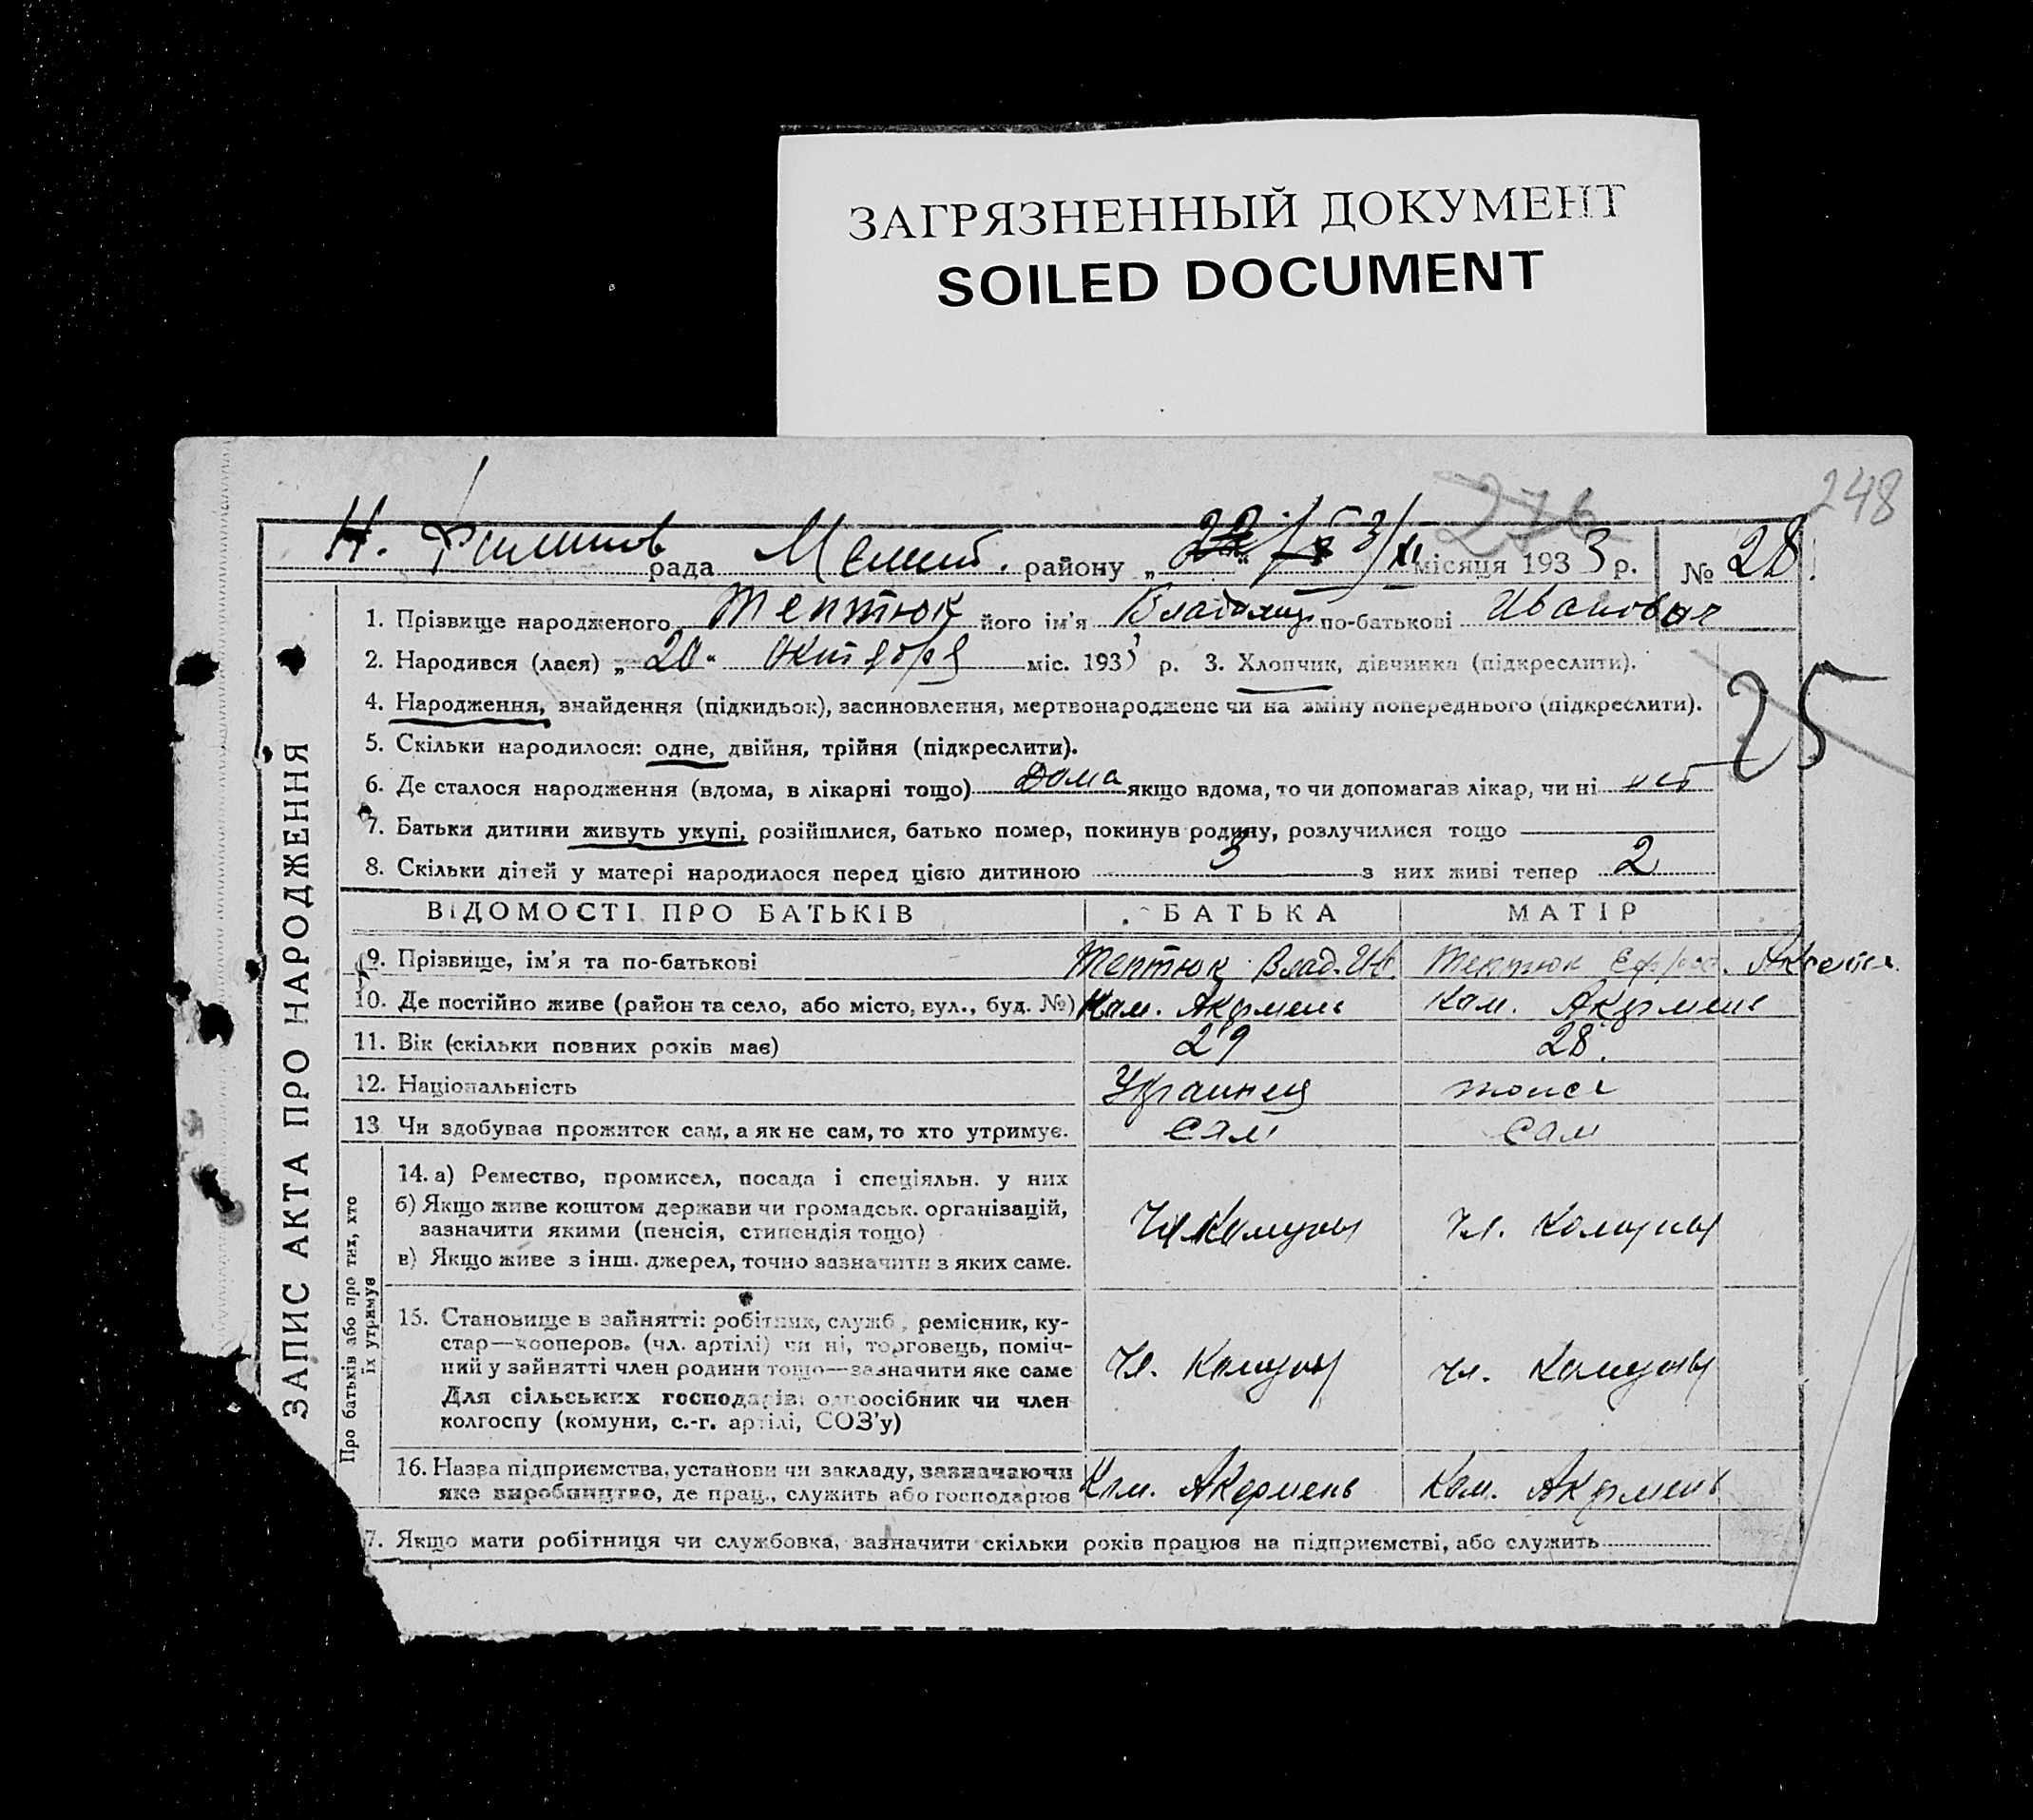 ЗАГРЯЗНЕННЫЙ ДОКУМЕНТ
SOILED DOCUMENT
276
248
Н. рада Меліт. району „22“ 3/XI місяця 1933 р. № 28
ЗАПИС АКТА ПРО НАРОДЖЕННЯ
1. Прізвище народженого Тептюк його ім'я Владимир по-батькові Иванович
2. Народився (лася) „20“ Октября міс. 1933 р. 3. Хлопчик, дівчинка (підкреслити).
4. Народження, знайдення (підкидьок), засиновлення, мертвонароджене чи на зміну попереднього (підкреслити).
25
5. Скільки народилося: одне, двійня, трійня (підкреслити).
6. Де сталося народження (вдома, в лікарні тощо) Дома якщо вдома, то чи допомагав лікар, чи ні нет
7. Батьки дитини живуть укупі, розійшлися, батько помер, покинув родину, розлучилися тощо
8. Скільки дітей у матері народилося перед цією дитиною 3 з них живі тепер 2
ВІДОМОСТІ ПРО БАТЬКІВ БАТЬКА МАТІР
9. Прізвище, ім'я та по-батькові Тептюк Влад. Ив. Тептюк Ефрос.
10. Де постійно живе (район та село, або місто, вул., буд. №) Кам. Акермень Кам. Акермень
11. Вік (скільки повних років має) 29 28.
12. Національність Украинец тоже
13 Чи здобуває прожиток сам, а як не сам, то хто утримує. Сам Сам
Про батьків або про тих, хто
їх утримує
14. а) Ремество, промисел, посада і спеціяльн. у них
б) Якщо живе коштом держави чи громадськ. організацій,
зазначити якими (пенсія, стипендія тощо) Чл Комуны Чл. Комуны
в) Якщо живе з інш. джерел, точно зазначити з яких саме.
15. Становище в зайнятті: робітник, служб., ремісник, ку-
стар—кооперов. (чл. артілі) чи ні, торговець, поміч-
ний у зайнятті член родини тощо—зазначити яке саме Чл. Комуны Чл. Комуны
Для сільських господарів: одноосібник чи член
колгоспу (комуни, с.-г. артілі, СОЗ'у)
16. Назва підприємства, установи чи закладу, зазначаючи
яке виробництво, де прац., служить або господарює Кам. Акермень Кам. Акермень
7. Якщо мати робітниця чи службовка, зазначити скільки років працює на підприємстві, або служить